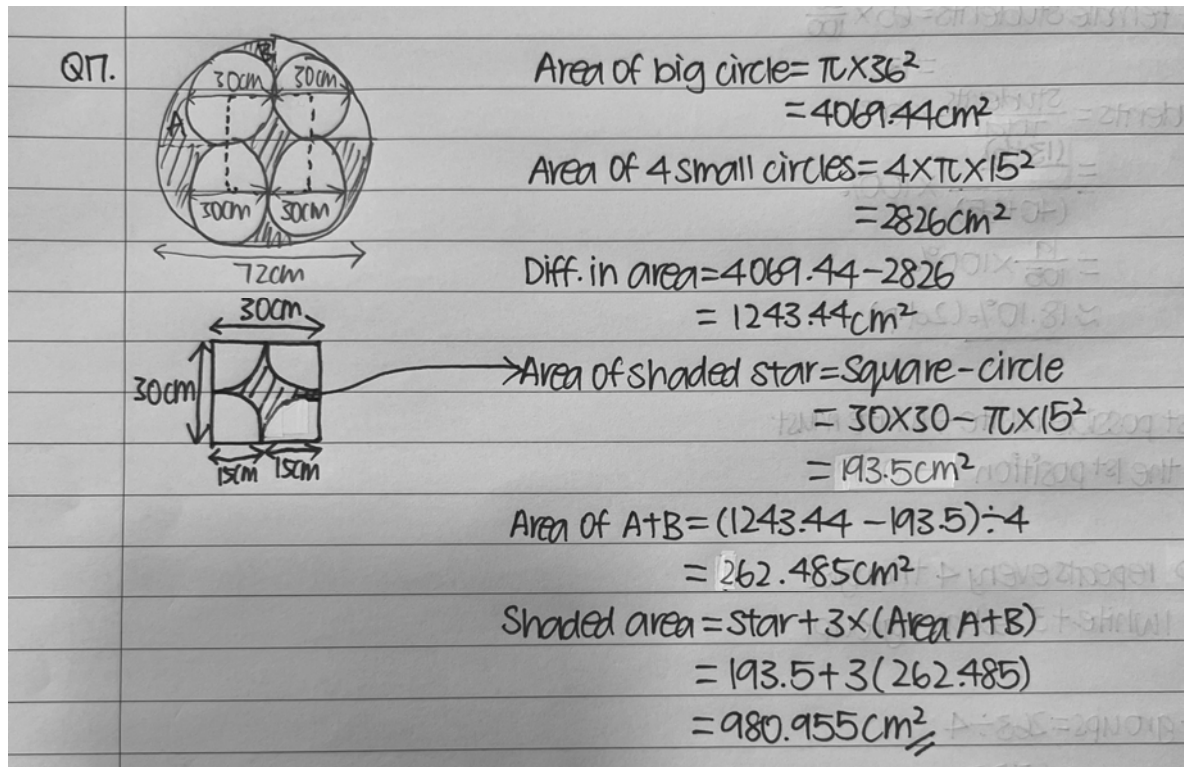 Q17.
B
30cm 30cm
A
30cm 30cm
72cm
30cm
30cm
15cm 15cm
Area of big circle= π×36²
= 4069.44cm²
Area of 4 small circles= 4×π×15²
= 2826cm²
Diff. in area=4069.44-2826
= 1243.44cm²
Area of shaded star=Square-circle
= 30×30-π×15²
= 193.5cm²
Area of A+B= (1243.44 -193.5)÷4
= 262.485cm²
Shaded area=star+3×(Area A+B)
= 193.5+3(262.485)
=980.955cm²